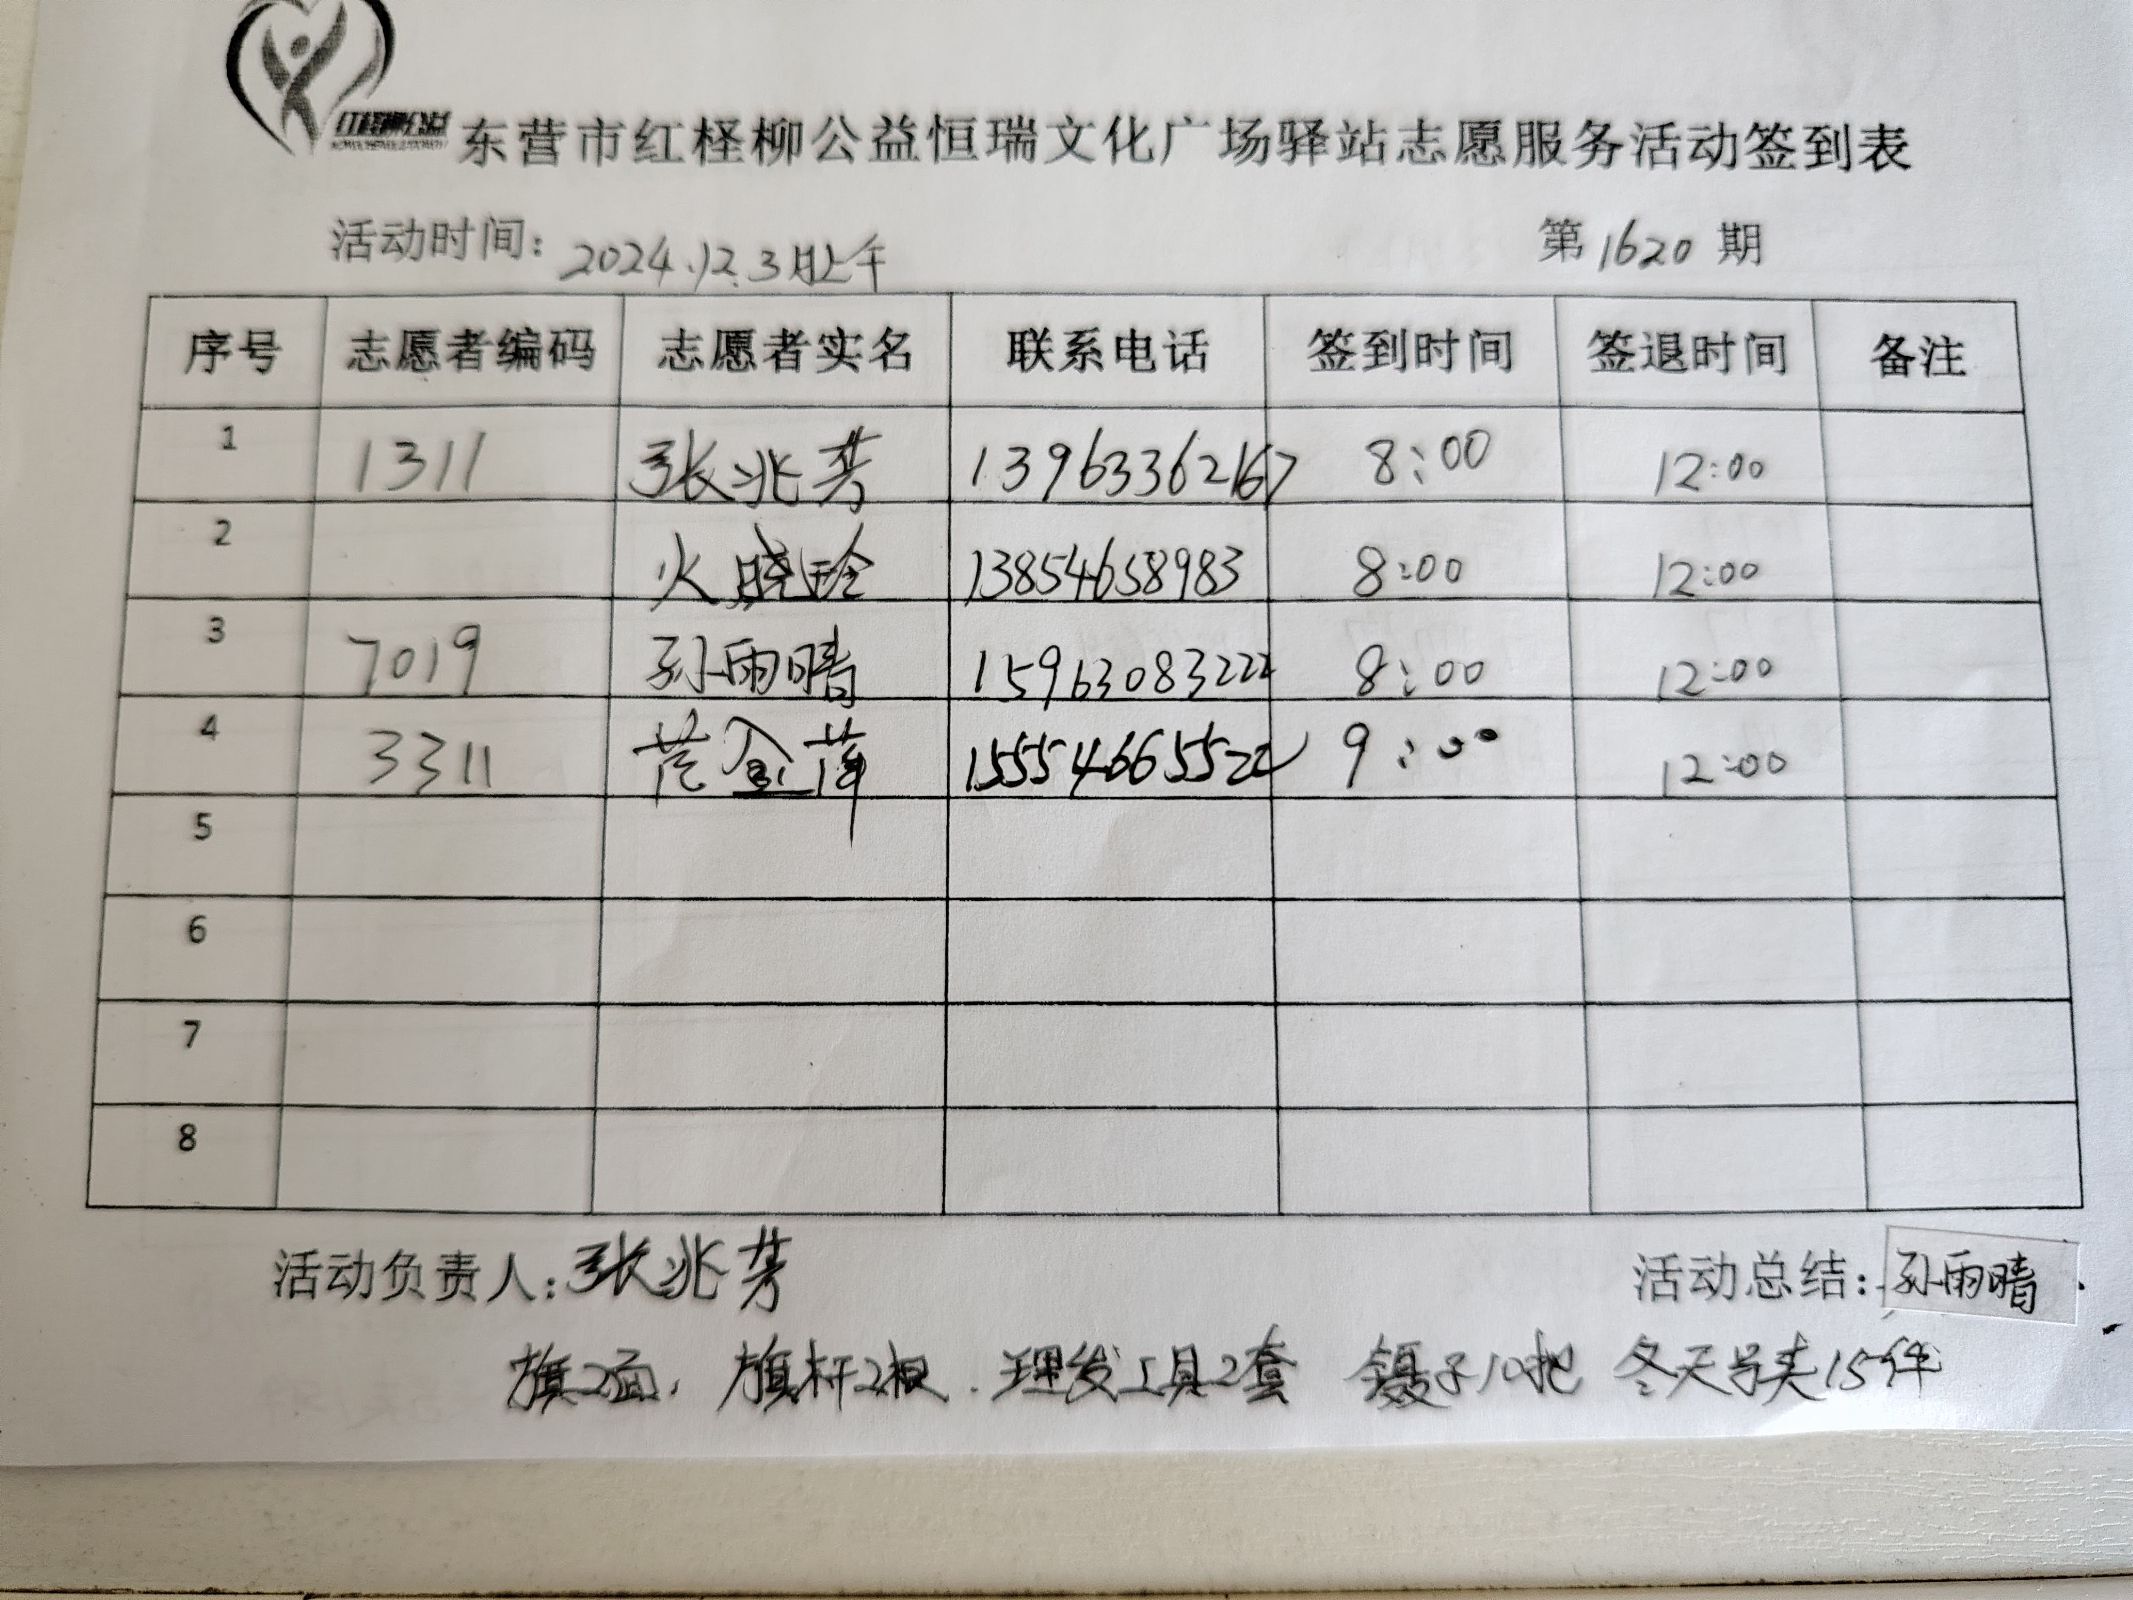 红柽柳公益
东营市红柽柳公益恒瑞文化广场驿站志愿服务活动签到表
活动时间: 2024.12.3日上午 第1620期
序号 志愿者编码 志愿者实名 联系电话 签到时间 签退时间 备注
1 1311 张兆芳 13963362167 8:00 12:00
2 火晓玲 13854658983 8:00 12:00
3 7019 孙雨晴 15963083222 8:00 12:00
4 3311 范金萍 15554665522 9:00 12:00
5
6
7
8
活动负责人:张兆芳 活动总结:孙雨晴
旗2面, 旗杆2根. 理发工具2套 镊子10把 冬天马夹15件